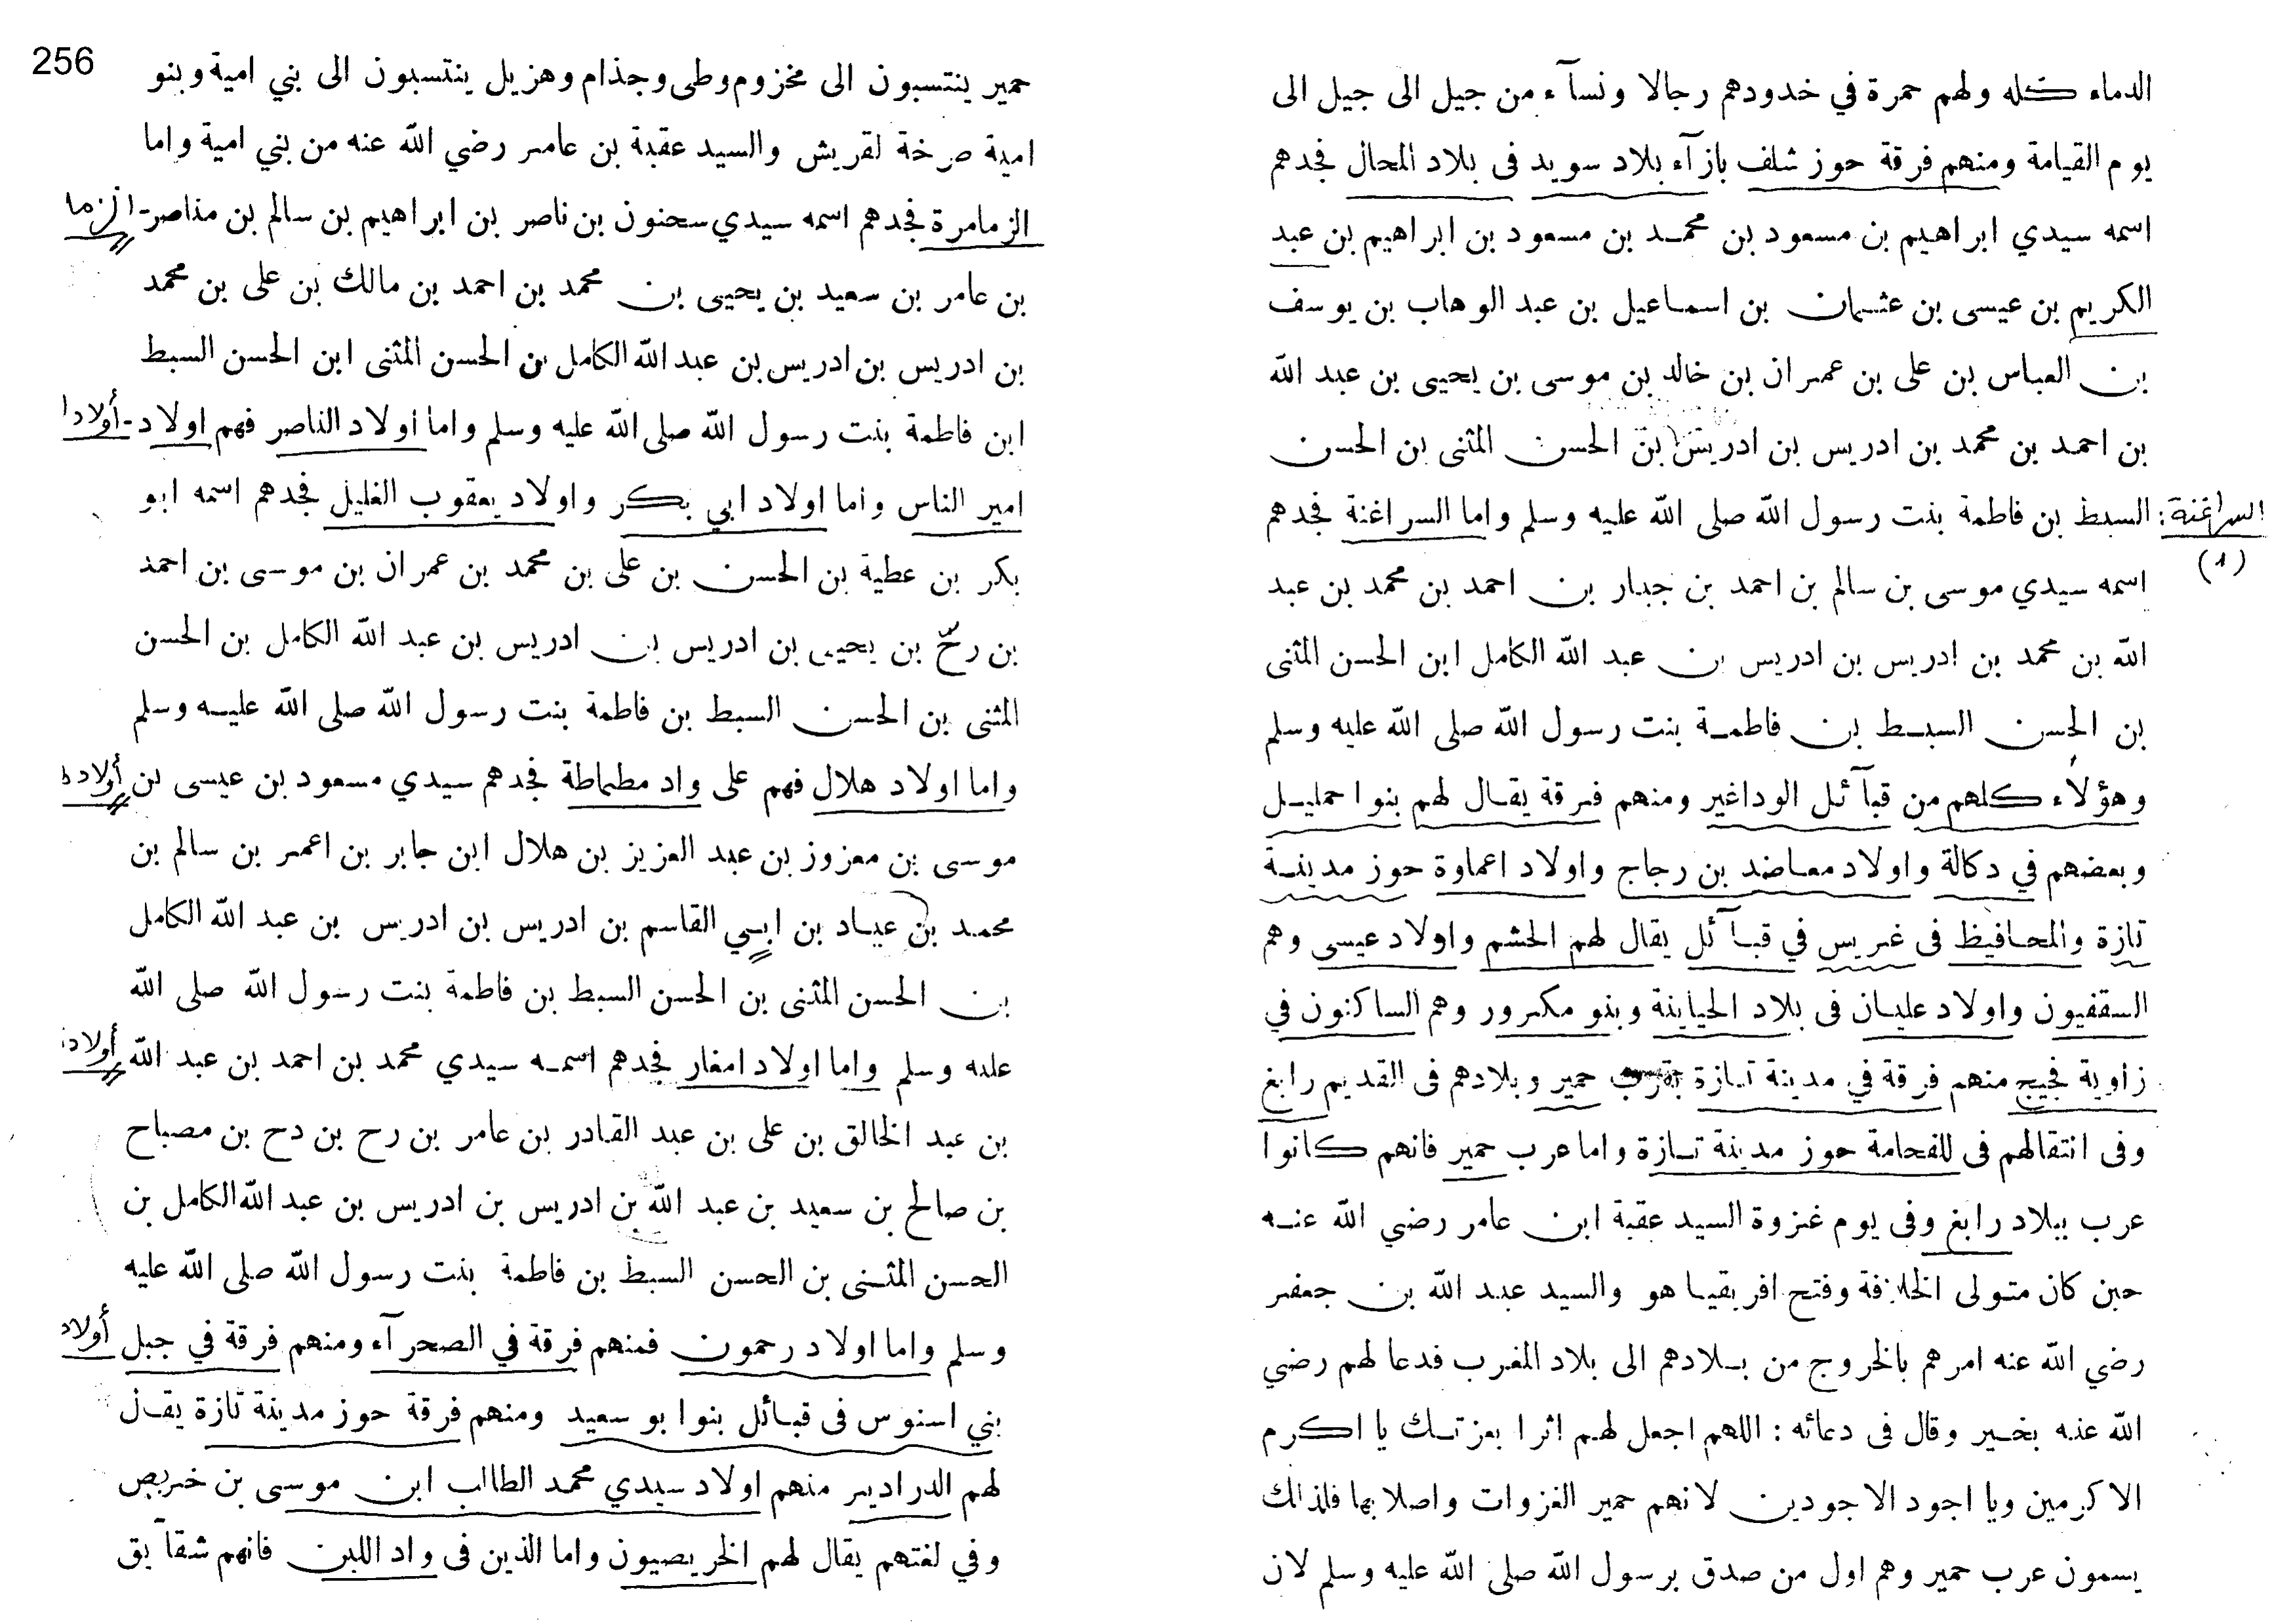 256
الدماء كله ولهم حمرة في خدودهم رجالا ونسآء من جيل الى جيل الى
يوم القيامة ومنهم فرقة حوز شلف بازآء بلاد سويد فى بلاد المحال فجدهم
اسمه سيدي ابراهيم بن مسعود بن محمد بن مسعود بن ابراهيم بن عبد
الكريم بن عيسى بن عثمان بن اسماعيل بن عبد الوهاب بن يوسف
بن العباس بن على بن عمران بن خالد بن موسى بن يحيى بن عبد الله
بن احمد بن محمد بن ادريس بن ادريس بن الحسن المثنى بن الحسن
السراغنة: السبط بن فاطمة بنت رسول الله صلى الله عليه وسلم واما السراغنة فجدهم
(1)
اسمه سيدي موسى بن سالم بن احمد بن جبار بن احمد بن محمد بن عبد
الله بن محمد بن ادريس بن ادريس بن عبد الله الكامل ابن الحسن المثنى
بن الحسن السبط بن فاطمة بنت رسول الله صلى الله عليه وسلم
وهؤلاء كلهم من قبآئل الوداغير ومنهم فرقة يقال لهم بنوا حمليل
وبعضهم في دكالة واولاد معاضد بن رجاج واولاد اعماوة حوز مدينة
تازة والمحافيظ فى غريس في قبآئل يقال لهم الحشم واولاد عيسى وهم
السقفيون واولاد عليان فى بلاد الحياينة وبنو مكرور وهم الساكنون في
زاوية فجيج منهم فرقة في مدينة تازة بقرب حمير وبلادهم فى القديم رابغ
وفى انتقالهم فى للفحامة حوز مدينة تازة واما عرب حمير فانهم كانوا
عرب ببلاد رابغ وفى يوم غزوة السيد عقبة ابن عامر رضي الله عنه
حين كان متولى الخلافة وفتح افريقيا هو والسيد عبد الله بن جعفر
رضي الله عنه امرهم بالخروج من بلادهم الى بلاد المغرب فدعا لهم رضي
الله عنه بخير وقال فى دعائه : اللهم اجعل لهم اثرا بعزتك يا اكرم
الاكرمين ويا اجود الاجودين لانهم حمير الغزوات واصلابها فلذالك
يسمون عرب حمير وهم اول من صدق برسول الله صلى الله عليه وسلم لان
حمير ينتسبون الى مخزوم وطى وجذام وهزيل ينتسبون الى بني امية وبنو
امية صرخة لقريش والسيد عقبة بن عامر رضي الله عنه من بني امية واما
الزمامرة فجدهم اسمه سيدي سحنون بن ناصر بن ابراهيم بن سالم بن مناصر - الزما
بن عامر بن سعيد بن يحيى بن محمد بن احمد بن مالك بن على بن محمد
بن ادريس بن ادريس بن عبد الله الكامل بن الحسن المثنى ابن الحسن السبط
ابن فاطمة بنت رسول الله صلى الله عليه وسلم واما اولاد الناصر فهم اولاد - أولادا
امير الناس واما اولاد ابي بكر واولاد يعقوب الغليل فجدهم اسمه ابو
بكر بن عطية بن الحسن بن على بن محمد بن عمران بن موسى بن احمد
بن رحّ بن يحيى بن ادريس بن ادريس بن عبد الله الكامل بن الحسن
المثنى بن الحسن السبط بن فاطمة بنت رسول الله صلى الله عليه وسلم
واما اولاد هلال فهم على واد مطماطة فجدهم سيدي مسعود بن عيسى بن أولاد ه
موسى بن معزوز بن عبد العزيز بن هلال ابن جابر بن اعمر بن سالم بن
محمد بن عياد بن ابي القاسم بن ادريس بن ادريس بن عبد الله الكامل
بن الحسن المثنى بن الحسن السبط بن فاطمة بنت رسول الله صلى الله
عليه وسلم واما اولاد امغار فجدهم اسمه سيدي محمد بن احمد بن عبد الله أولاد
بن عبد الخالق بن على بن عبد القادر بن عامر بن رح بن دح بن مصباح
بن صالح بن سعيد بن عبد الله بن ادريس بن ادريس بن عبد الله الكامل بن
الحسن المثنى بن الحسن السبط بن فاطمة بنت رسول الله صلى الله عليه
وسلم واما اولاد رحمون فمنهم فرقة في الصحرآء ومنهم فرقة في جبل أولاد
بني اسنوس فى قبائل بنوا بو سعيد ومنهم فرقة حوز مدينة تازة يقال
لهم الدرادير منهم اولاد سيدي محمد الطالب ابن موسى بن خريص
وفي لغتهم يقال لهم الخريصيون واما الذين فى واد اللبن فانهم شقآيق